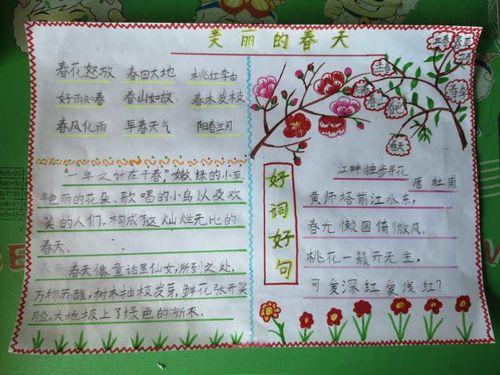 美丽的春天
春花怒放 春回大地 桃红李白
好雨知春 春山如故 春木发枝
春风化雨 早春天气 阳春三月
"一年之计在于春"嫩绿的小草
艳丽的花朵、歌唱的小鸟以及欢
笑的人们,构成了这灿烂无比的
春天。
春天像童话里仙女,所到之处,
万物苏醒,树木抽枝发芽,鲜花张开笑
脸,大地披上了绿色的新衣。
好词好句
江畔独步寻花
唐 杜甫
黄师塔前江水东,
春光懒困倚微风。
桃花一簇开无主,
可爱深红爱浅红?
春天